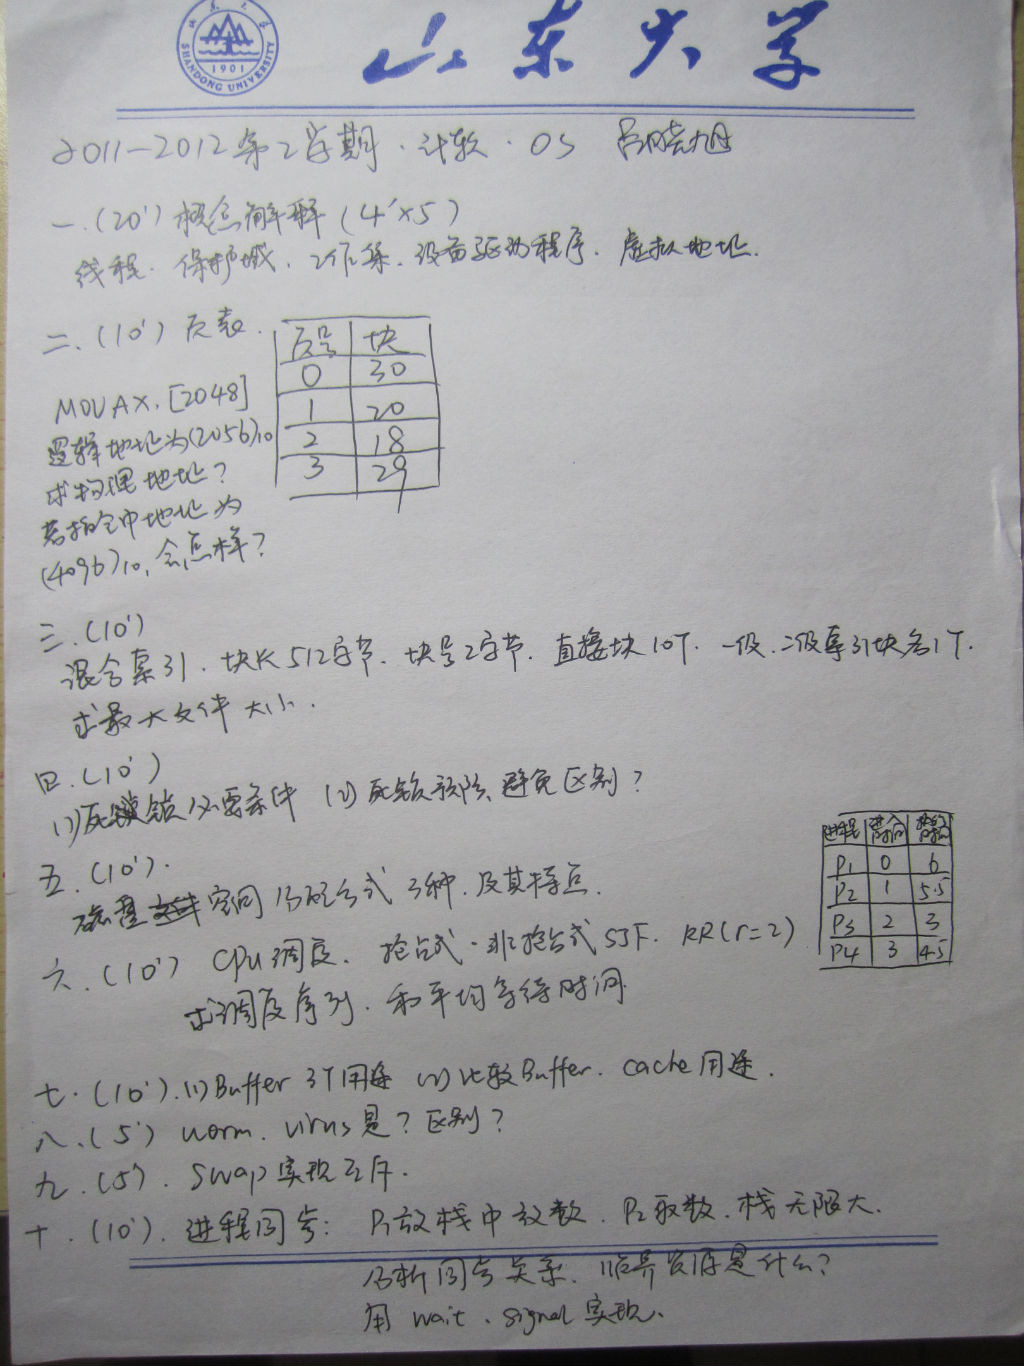 山东大学
SHANDONG UNIVERSITY
1901
2011-2012第2学期·计软·OS 吕晓旭
一.(20')概念解释(4'×5)
线程.保护域.工作集.设备驱动程序.虚拟地址.
二.(10')页表.
页号 块
0 30
1 20
2 18
3 29
MOV AX,[2048]
逻辑地址为(2056)10
求物理地址?
若指令中地址为
(4096)10,会怎样?
三.(10')
混合索引.块长512字节.块号2字节.直接块10个.一级.二级索引块各1个.
求最大文件大小.
四.(10')
(1)死锁必要条件 (2)死锁预防、避免区别?
五.(10').
磁盘空间分配方式3种.及其特点.
六.(10')CPU调度.抢占式·非抢占式SJF.RR(r=2)
求调度序列.和平均等待时间
进程 进入时间 执行时间
P1 0 6
P2 1 5.5
P3 2 3
P4 3 4.5
七.(10').(1)Buffer 3个用途 (2)比较Buffer.cache用途.
八.(5')worm.virus是?区别?
九.(5').Swap实现互斥.
十.(10').进程同步:P1放栈中放数.P2取数.栈无限大.
分析同步关系.临界资源是什么?
用wait、signal实现.